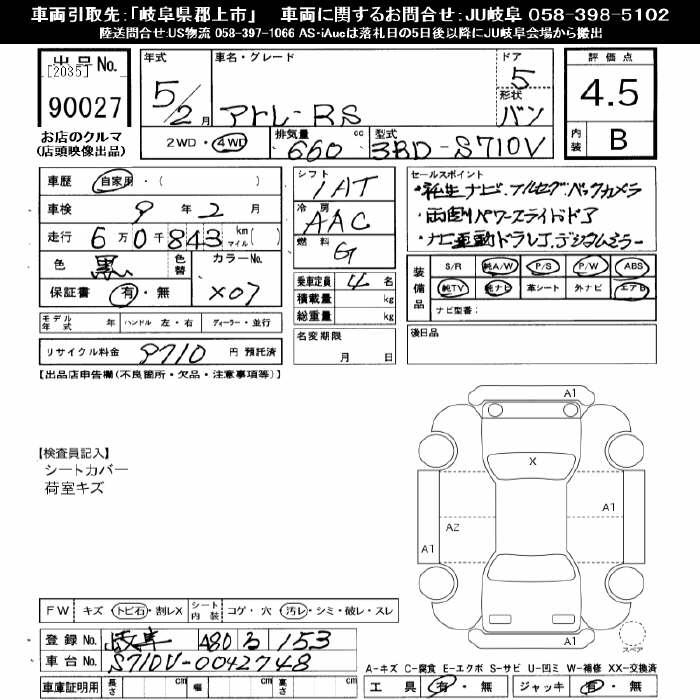 車両引取先:「岐阜県郡上市」 車両に関するお問合せ:JU岐阜 058-398-5102
陸送問合せ:US物流 058-397-1066 AS-iAucは落札日の5日後以降にJU岐阜会場から搬出
出品No.
[2035]
90027
お店のクルマ
(店頭映像出品)
年式 車名・グレード ドア
5/2月 アトレーRS 5
形状
バン
2WD・4WD 排気量 660 cc 型式 3BD-S710V
評価点
4.5
内装 B
車歴 自家用・( )
車検 9年2月
走行 6万0千843 km マイル( )
色 黒 色替 カラーNo.
保証書 有・無 X07
モデル年式 年 ハンドル 左・右 ディーラー・並行
リサイクル料金 9710 円 預託済
シフト
IAT
冷房
AAC
燃料
G
乗車定員 4 名
積載量 kg
総重量 kg
名変期限
月 日
セールスポイント
・純正ナビ.フルセグ.バックカメラ
・両側パワースライドドア
・ナビ連動ドラレコ.デジタルミラー
装備品 S/R 純A/W P/S P/W ABS
純TV 純ナビ 革シート 外ナビ エアB
ナビ型番:
後日品
【出品店申告欄(不良箇所・欠品・注意事項等)】
【検査員記入】
シートカバー
荷室キズ
A1
X
A2
A1
A1
A1
スペア
FW キズ・トビ石・割レX シート内装 コゲ・穴・汚レ・シミ・破レ・スレ
登録No. 岐阜 480 る 153
車台No. S710V-0042748
車庫証明用 長さ cm 幅 cm 高さ cm
A-キズ C-腐食 E-エクボ S-サビ U-凹ミ W-補修 XX-交換済
工具 有・無 ジャッキ 有・無